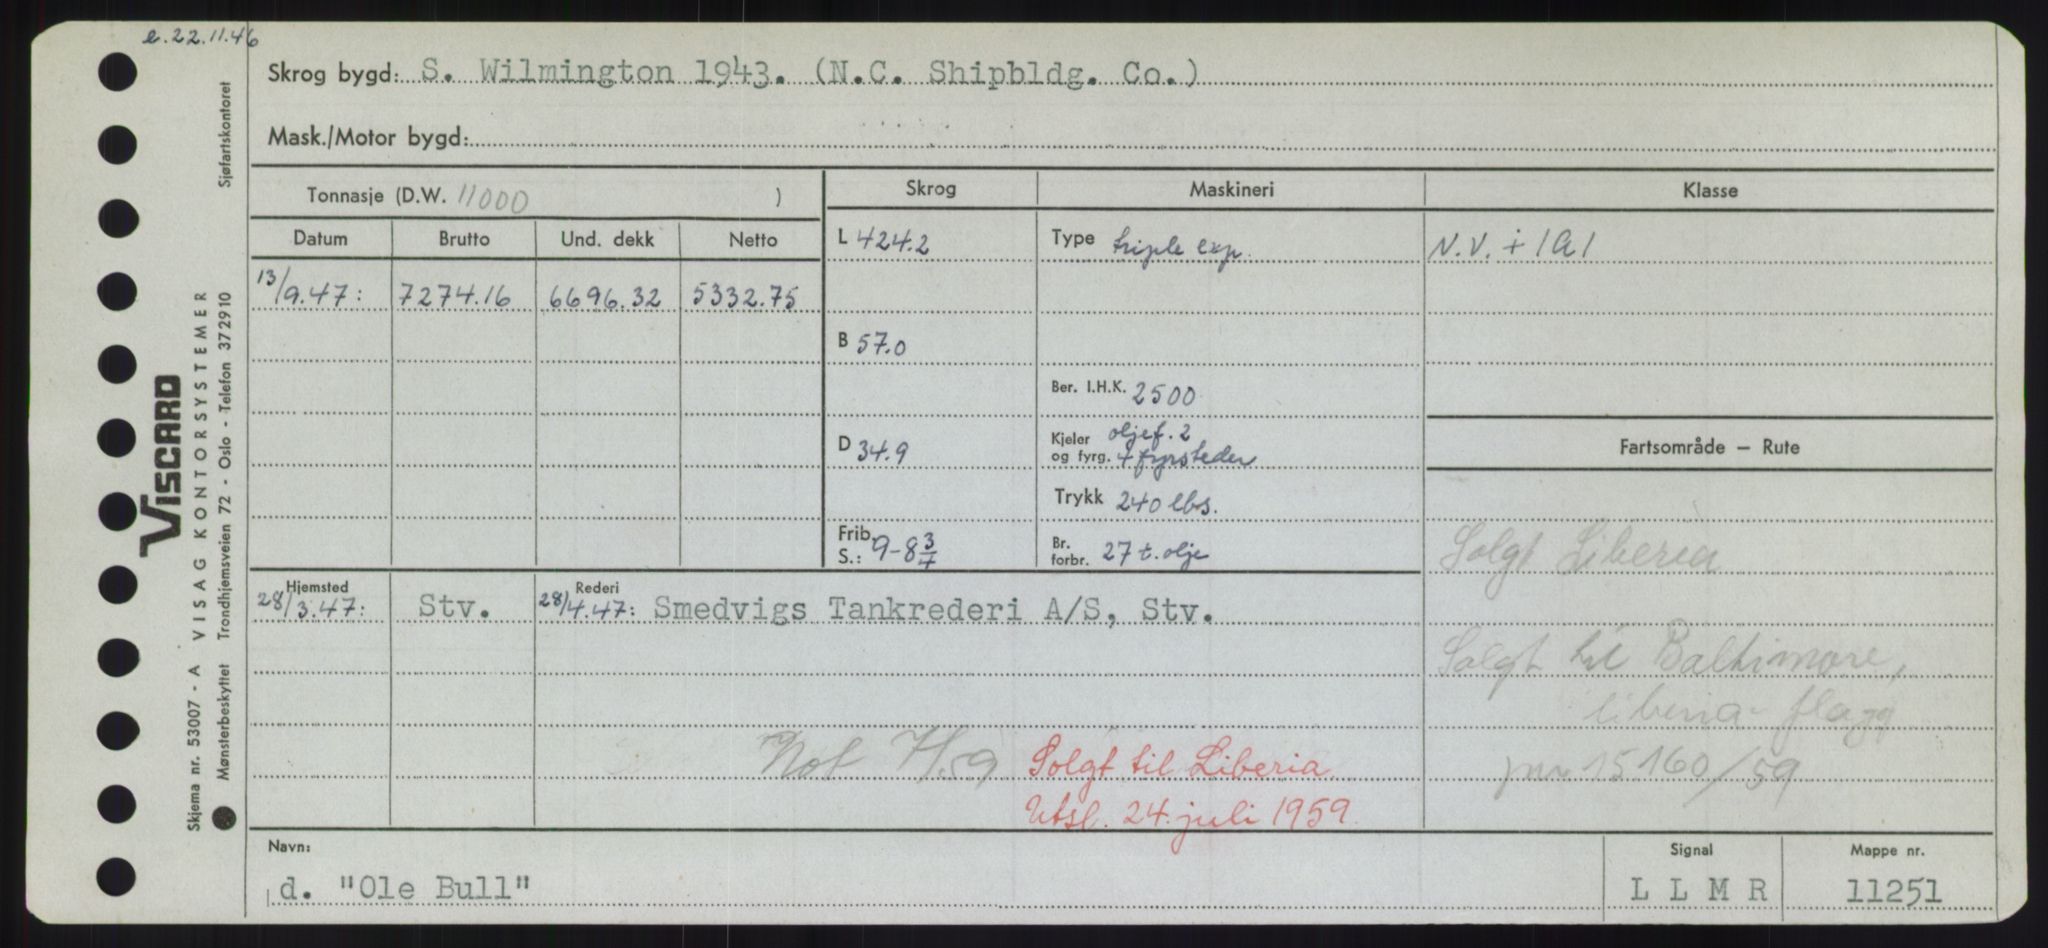 e. 22.11.46
Skrog bygd: S. Wilmington 1943. (N.C. Shipbldg. Co.)
Mask./Motor bygd:
Tonnasje (D.W. 11000 )
Skrog Maskineri Klasse
Datum Brutto Und. dekk Netto
L 424.2 Type triple exp. N.V. + 1A1
13/9.47: 7274.16 6696.32 5332.75
B 57.0
Ber. I.H.K. 2500
D 34.9 Kjeler og fyrg. oljef. 2
4 fyrsteder
Fartsområde — Rute
Trykk 240 lbs.
Frib. S.: 9-8 3/4 Br. forbr. 27 t. olje
Solgt Liberia
Hjemsted Rederi
28/3.47: Stv. 28/4.47: Smedvigs Tankrederi A/S, Stv.
Solgt til Baltimore,
liberia-flagg
Not 7/7.59 Solgt til Liberia jnr 15160/59
Utsl. 24. juli 1959
Navn: Signal Mappe nr.
d. "Ole Bull" L L M R 11251
Skjema nr. 53007 - A VISAG KONTORSYSTEMER
Mønsterbeskyttet Trondhjemsveien 72 - Oslo - Telefon 372910
Sjøfartskontoret
VISCARD